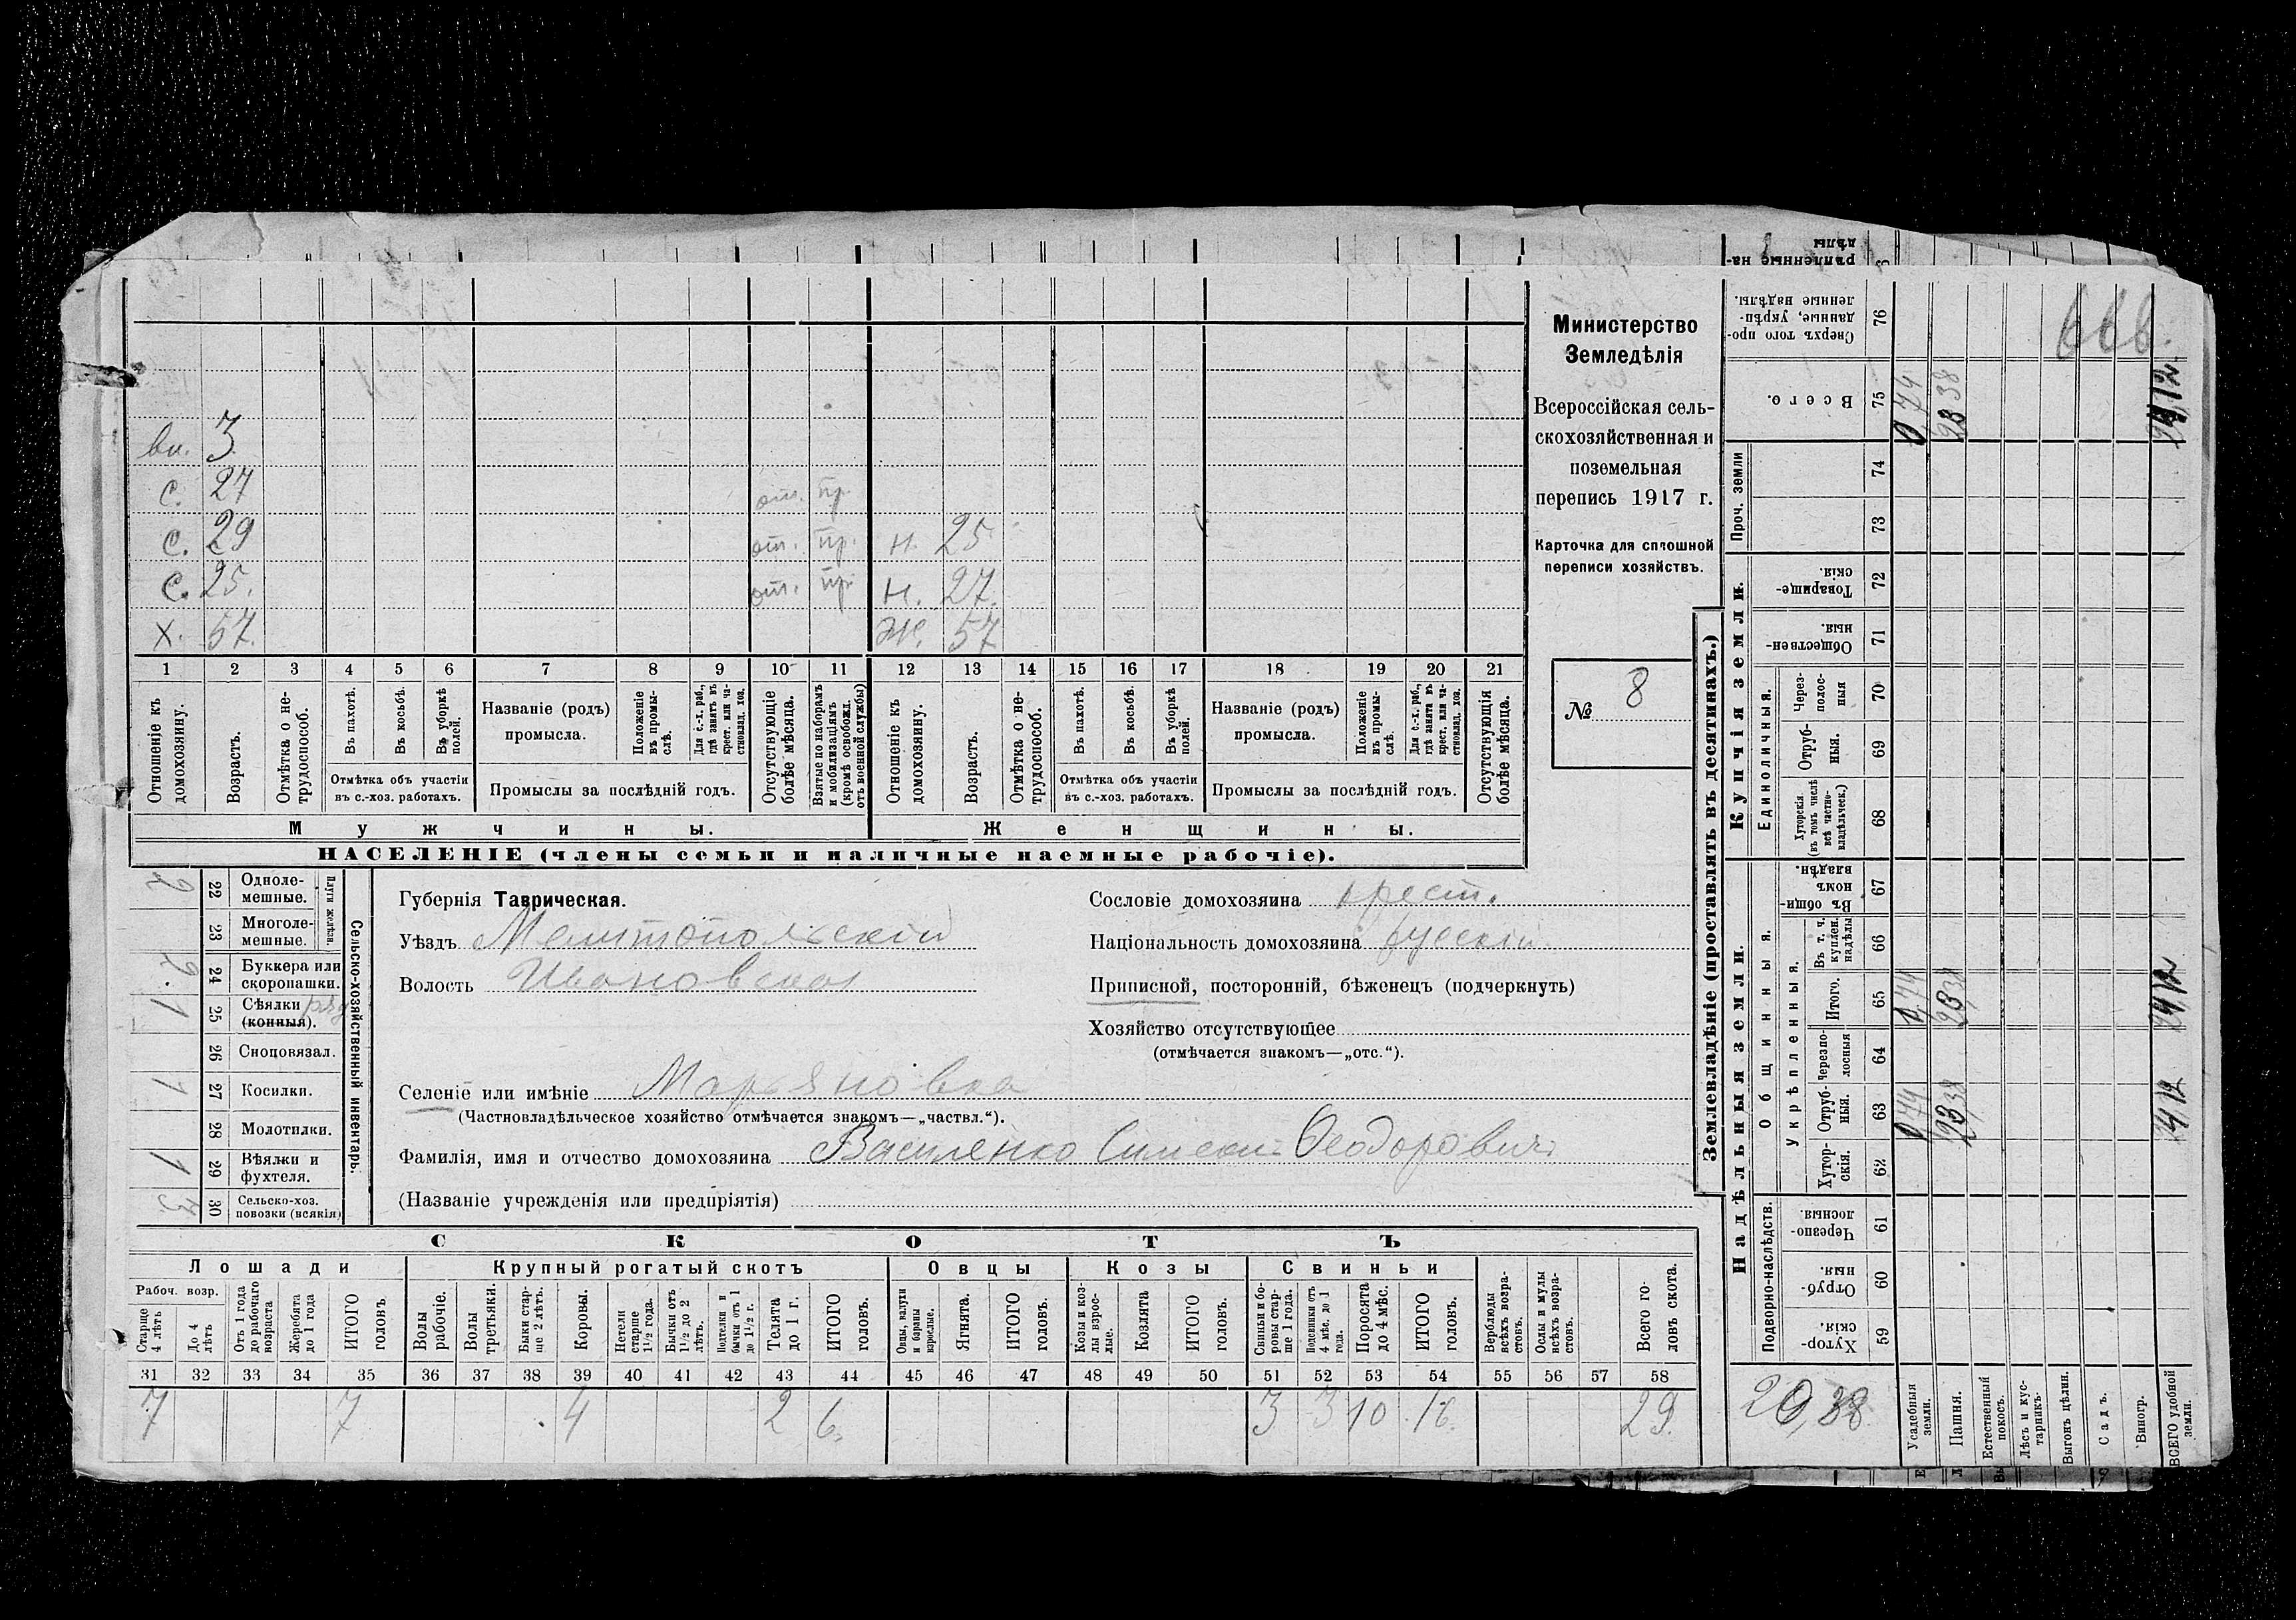 вн. 3
с. 27 от. пр.
с. 29 от. пр. н. 25
с. 25. от. пр. н. 27.
х. 57. ж. 57
1 2 3 4 5 6 7 8 9 10 11 12 13 14 15 16 17 18 19 20 21
Отношеніе къ домохозяину.
Возрастъ.
Отмѣтка о нетрудоспособ.
Въ пахотѣ.
Въ косьбѣ.
Въ уборкѣ полей.
Отмѣтка объ участіи
въ с.-хоз. работахъ.
Названіе (родъ)
промысла.
Положеніе въ промыслѣ.
Для с.-х. раб., гдѣ занятъ въ крест. или частновлад. хоз.
Промыслы за послѣдній годъ.
Отсутствующіе болѣе мѣсяца.
Взятые по наборамъ и мобилизаціямъ (кромѣ освобожд. отъ военной службы)
Отношеніе къ домохозяину.
Возрастъ.
Отмѣтка о нетрудоспособ.
Въ пахотѣ.
Въ косьбѣ.
Въ уборкѣ полей.
Отмѣтка объ участіи
въ с.-хоз. работахъ.
Названіе (родъ)
промысла.
Положеніе въ промыслѣ.
Для с.-х. раб., гдѣ занята въ крест. или частновлад. хоз.
Промыслы за послѣдній годъ.
Отсутствующія болѣе мѣсяца.
Мужчины.
Женщины.
НАСЕЛЕНІЕ (члены семьи и наличные наемные рабочіе).
Министерство
Земледѣлія
Всероссійская сель-
скохозяйственная и
поземельная
перепись 1917 г.
Карточка для сплошной
переписи хозяйствъ.
№ 8
Сельско-хозяйственный инвентарь.
Плуги желѣзн.
2 22 Одноле-
мешные.
23 Многоле-
мешные.
2. 24 Буккера или
скоропашки.
1 25 Сѣялки ряд
(конныя).
26 Сноповязал.
1 27 Косилки.
28 Молотилки.
1 29 Вѣялки и
фухтеля.
3 30 Сельско-хоз.
повозки (всякія)
Губернія Таврическая.
Уѣздъ Мелитопольскій
Волость Ивановская
Сословіе домохозяина крест.
Національность домохозяина русскій
Приписной, посторонній, бѣженецъ (подчеркнуть)
Хозяйство отсутствующее
(отмѣчается знакомъ—„отс.“).
Селеніе или имѣніе Марьяновка
(Частновладѣльческое хозяйство отмѣчается знакомъ—„частвл.“).
Фамилія, имя и отчество домохозяина Василенко Симеон Феодорович
(Названіе учрежденія или предпріятія)
СКОТЪ
Лошади
Крупный рогатый скотъ
Овцы
Козы
Свиньи
Рабоч. возр.
Старше 4 лѣтъ
До 4 лѣтъ
Отъ 1 года до рабочаго возраста
Жеребята до 1 года
ИТОГО головъ
Волы рабочіе.
Волы третьяки.
Быки старше 2 лѣтъ.
Коровы.
Нетели старше 1½ года.
Бычки отъ 1½ до 2 лѣтъ.
Подтелки и бычки отъ 1 до 1½ г.
Телята до 1 г.
ИТОГО головъ.
Овцы, валухи и бараны взрослые.
Ягнята.
ИТОГО головъ.
Козы и козлы взрослые.
Козлята
ИТОГО головъ.
Свиньи и боровы старше 1 года.
Подсвинки отъ 4 мѣс. до 1 года.
Поросята до 4 мѣс.
ИТОГО головъ.
Верблюды всѣхъ возрастовъ.
Ослы и мулы всѣхъ возрастовъ.
Всего головъ скота.
31 32 33 34 35 36 37 38 39 40 41 42 43 44 45 46 47 48 49 50 51 52 53 54 55 56 57 58
7 7 4 2 6. 3 3 10 16. 29.
Землевладѣніе (проставлять въ десятинахъ.)
Купчія земли.
Надѣльныя земли.
Сверхъ того проданные, укрѣпленные надѣлы. 76
Всего. 75 0,74 23 38
Проч. земли 74 73
Товарищескія. 72
Общественныя. 71
Единоличныя.
Черезполосныя 70
Отрубныя. 69
Хуторскія (въ томъ числѣ всѣ частновладѣльческ.) 68
Общинныя.
Въ общиномъ владѣн. 67
Укрѣпленныя.
Въ т. ч. куплен. надѣлы 66
Итого. 65
Черезполосныя 64
Отрубныя. 63
Хуторскія. 62
Подворно-наслѣдств.
Черезполосныя. 61
Отрубныя. 60
Хуторскія. 59
Усадебныя земли.
Пашня.
Естественный покосъ.
Лѣсъ и кустарникъ.
Выгонъ цѣлин.
Садъ.
Виногр.
ВСЕГО удобной земли.